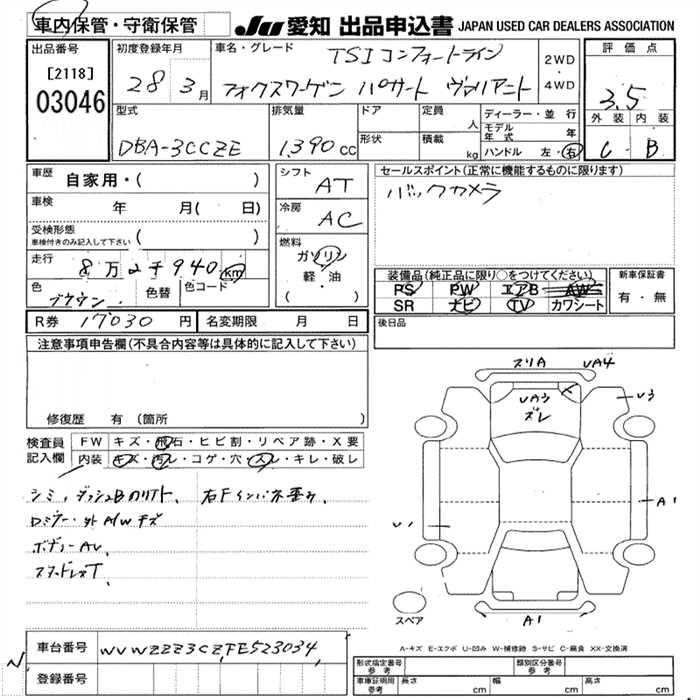 車内保管・守衛保管
JU 愛知 出品申込書 JAPAN USED CAR DEALERS ASSOCIATION
出品番号 初度登録年月 車名・グレード TSI コンフォートライン 2WD 評価点
[2118] 28 3月 フォクスワーゲン パサート ヴァリアント 4WD 3.5
03046
型式 排気量 ドア 定員 人 ディーラー・並行 外装 内装
DBA-3CCZE 1390cc 形状 積載 kg モデル年式 年 C B
ハンドル 左・右
車歴 自家用・( ) シフト AT セールスポイント(正常に機能するものに限ります)
車検 年 月( 日) 冷房 AC バックカメラ
受検形態
車検付きのみ記入して下さい ( )
燃料 ガソリン
軽・油
( )
走行 8万2千940km 装備品(純正品に限り○をつけてください) 新車保証書
色 ブラウン 色替 色コード PS PW エアB AW 有・無
SR ナビ TV カワシート
R券 17030円 名変期限 月 日 後日品
注意事項申告欄(不具合内容等は具体的に記入して下さい)
修復歴 有 (箇所 )
検査員 FW キズ・飛石・ヒビ割・リペア跡・X要
記入欄 内装 キズ・汚レ・コゲ・穴・スレ・キレ・破レ
シミ、ダッシュBのリイト、右Fインパネ歪み、
ロミラー・外A/Wキズ
ボデーAU、
スタッドレスT、
ズリA UA4
UA3
ズレ
U3
A1
U1
A1
スペア
A-キズ E-エクボ U-凹み W-補修跡 S-サビ C-腐食 XX-交換済
車台番号 WVWZZZ3CZFE523034
登録番号
形式指定番号 参考 類別区分番号 参考
車庫証明用 参考 長さ cm 幅 cm 高さ cm